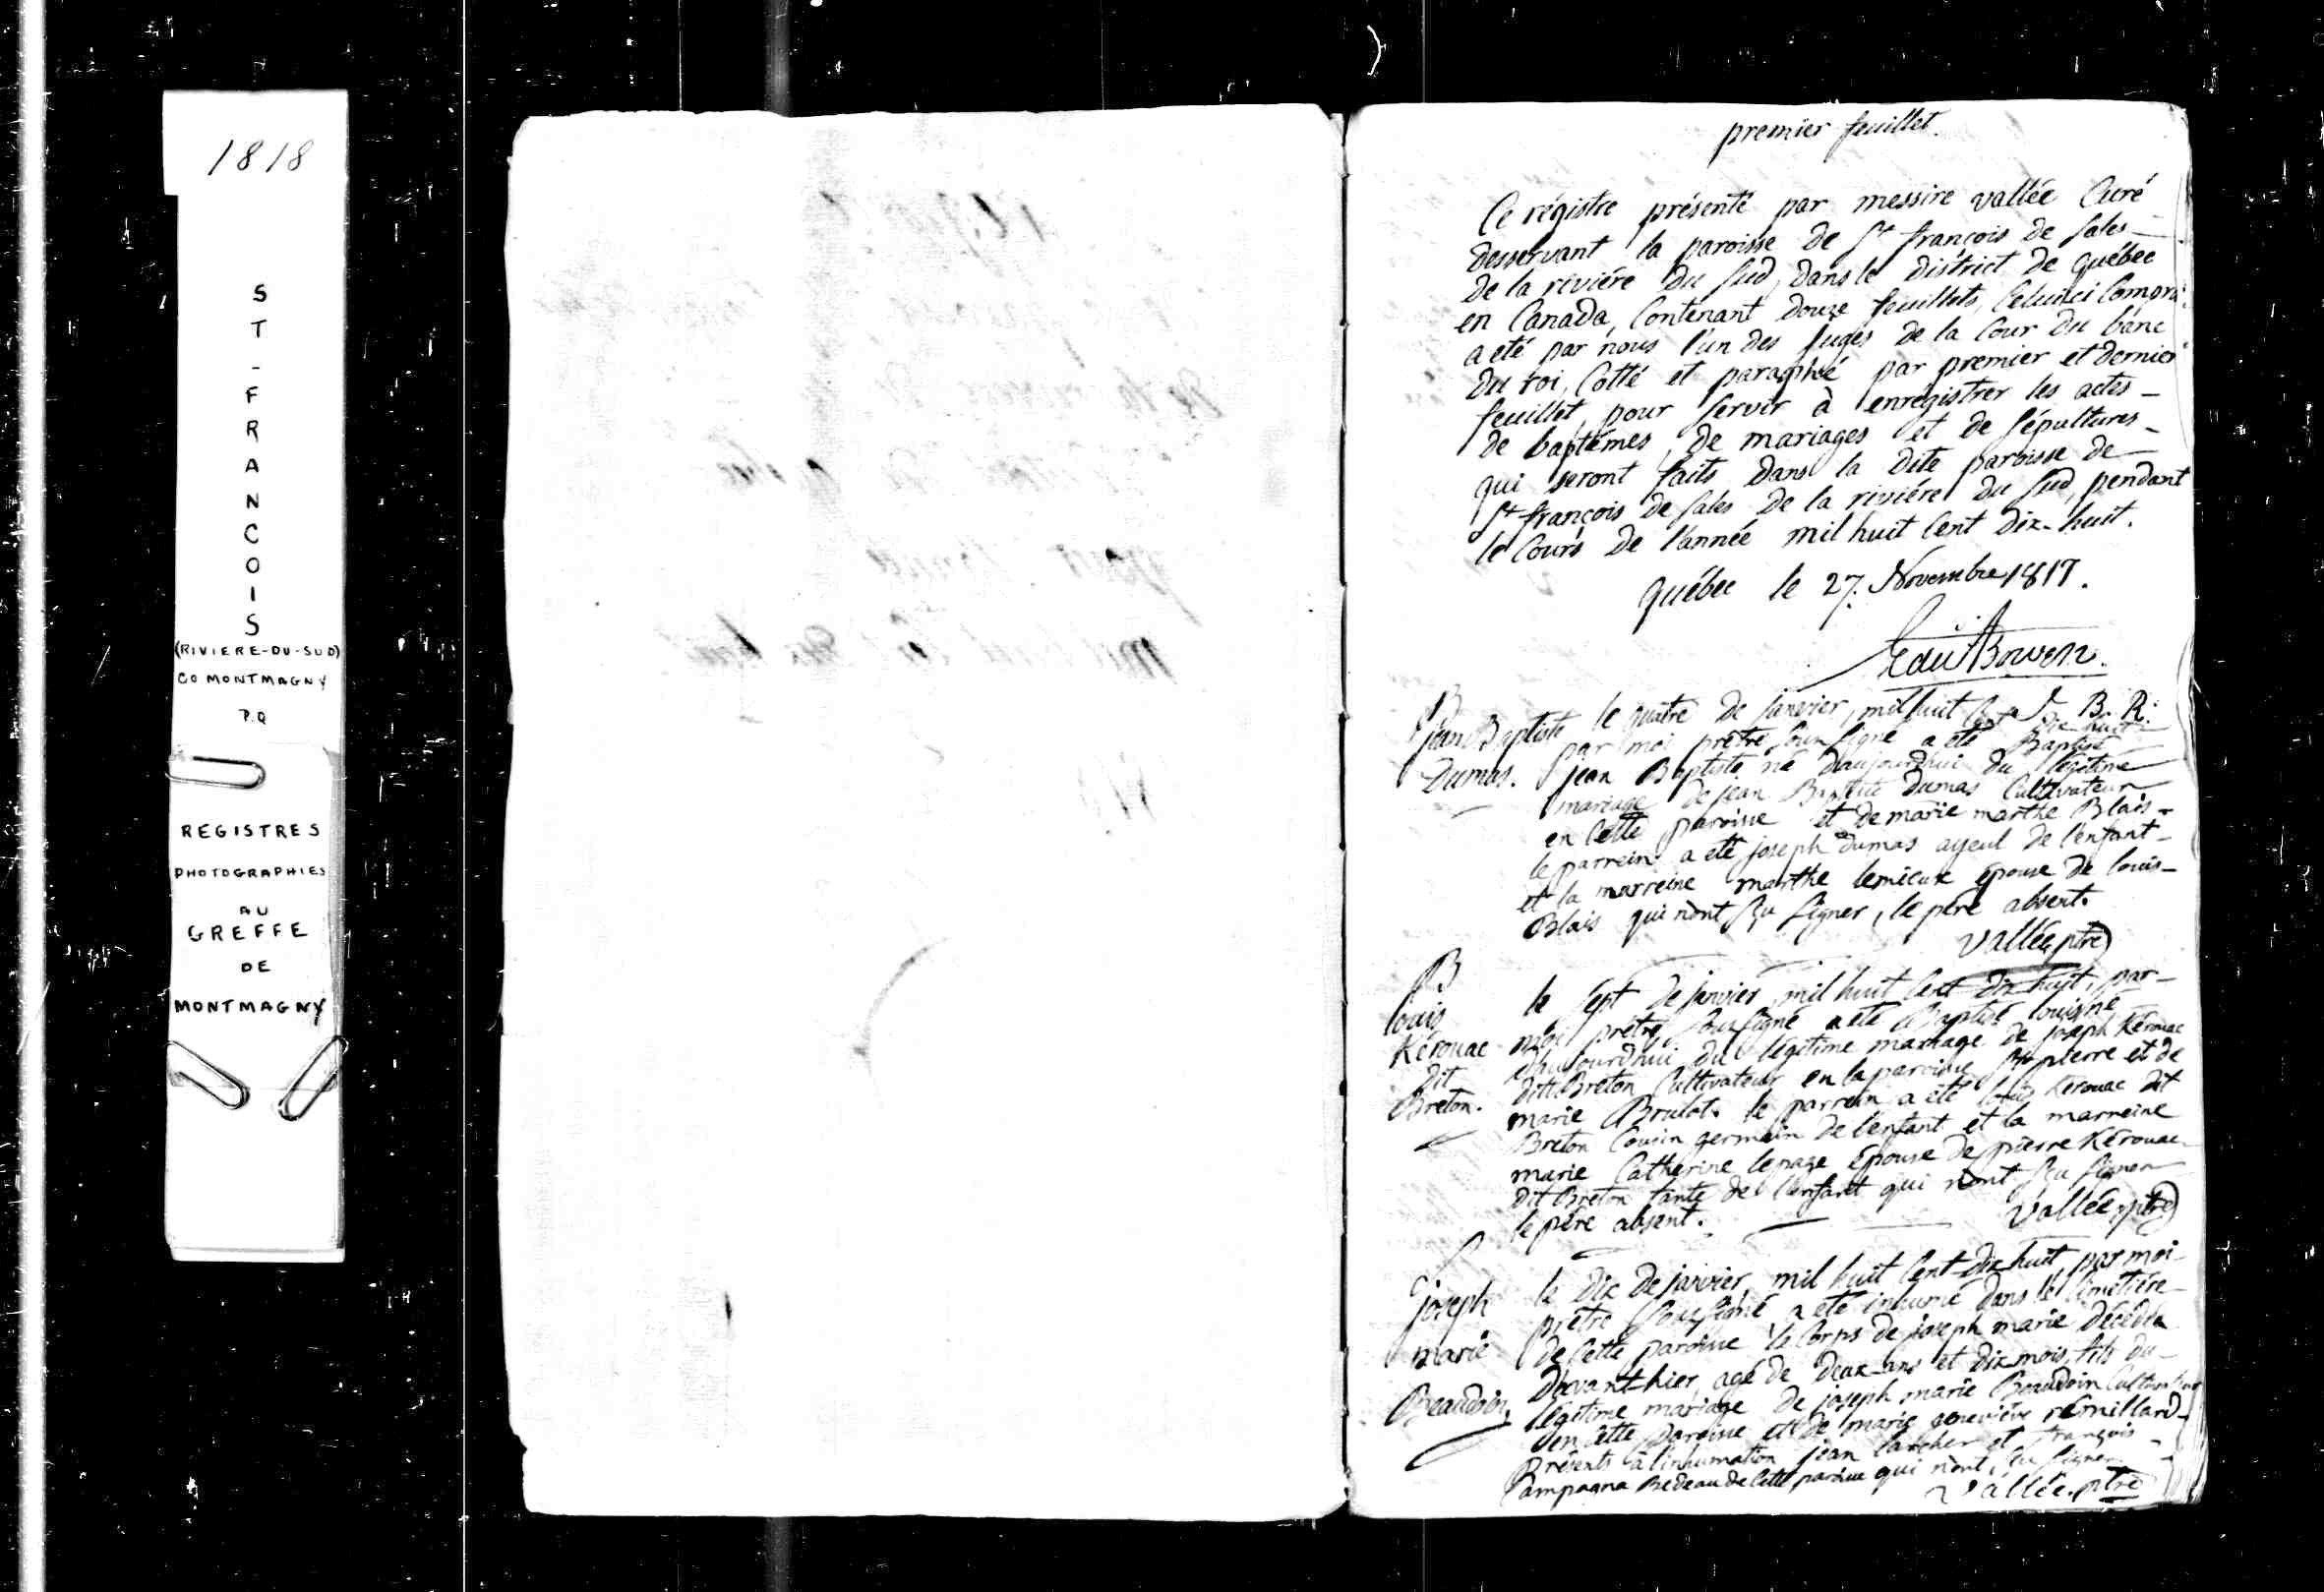 1818
S
T
-
F
R
A
N
C
O
I
S
(RIVIERE-DU-SUD)
CO MONTMAGNY
P.Q
REGISTRES
PHOTOGRAPHIES
AU
GREFFE
DE
MONTMAGNY
premier feuillet.
Ce régistre présenté par messire vallée Curé
desservant la paroisse de St françois de Sales
de la riviére du Sud, dans le district de québec
en Canada, Contenant douze feuillets, Celuici Compris
a eté par nous l'un des Juges de la Cour du banc
du roi, Cotté et paraphé par premier et dernier
feuillet, pour servir à enregistrer les actes
de baptêmes, de mariages et de Sépultures
qui seront faits dans la dite paroisse de
St françois de Sales de la riviére du Sud, pendant
le Cours de l'année mil huit Cent dix-huit.
québec le 27. Novembre 1817.
Edwd Bowen.
J. B. R.
B
jean Baptiste
Dumas.
le quatre de janvier, mil huit Cent dix huit
par moi prêtre Soussigné a eté Baptisé
jean Baptiste né d'aujourdhui du légitime
mariage de jean Baptiste Dumas Cultivateur
en Cette paroisse et de marie marthe Blais
le parrein a eté joseph Dumas ayeul de l'enfant
et la marreine marthe lemieux épouse de louis
Blais qui n'ont Sçu Signer, le pére absent.
vallée, ptre
B
louis
Kérouac
dit
Breton.
le Sept de janvier, mil huit Cent dix huit, par
moi prêtre Soussigné a eté Baptisé louis né
d'aujourdhui du légitime mariage de joseph Kérouac
dit Breton Cultivateur en la paroisse St pierre et de
marie Brulot. le parrein a eté louis Kérouac dit
Breton Cousin germain de l'enfant et la marreine
marie Catherine lepage épouse de pierre Kérouac
dit Breton tante de l'enfant qui n'ont Sçu Signer
le pére absent.
vallée, ptre
S
joseph
marie
Beaudoin.
le dix de janvier, mil huit Cent dix huit, par moi
prêtre Soussigné, a eté inhumé dans le Cimetiére
de Cette paroisse le Corps de joseph marie décédé
devant-hier, agé de deux ans et dix mois, fils du
légitime mariage de joseph marie Beaudoin Cultivateur
en Cette paroisse et de marie geneviéve rémillard
Présents à l'inhumation jean larcher et françois
Campagna Bedeau de Cette paroisse qui n'ont Sçu Signer
vallée, ptre